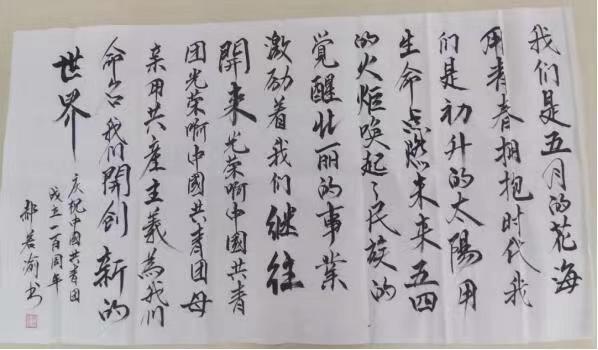 我们是五月的花海
用青春拥抱时代我
们是初升的太陽用
生命点燃未来五四
的火炬唤起了民族的
覺醒壮丽的事業
激励着我们继往
開来光荣啊中國共青
团光荣啊中國共青团母
亲用共產主義為我们
命名我们開创新的
世界
庆祝中國共青团
成立一百周年
郝若渝书